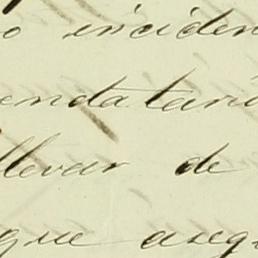 o inciden
endatari
llevar de
que aseg